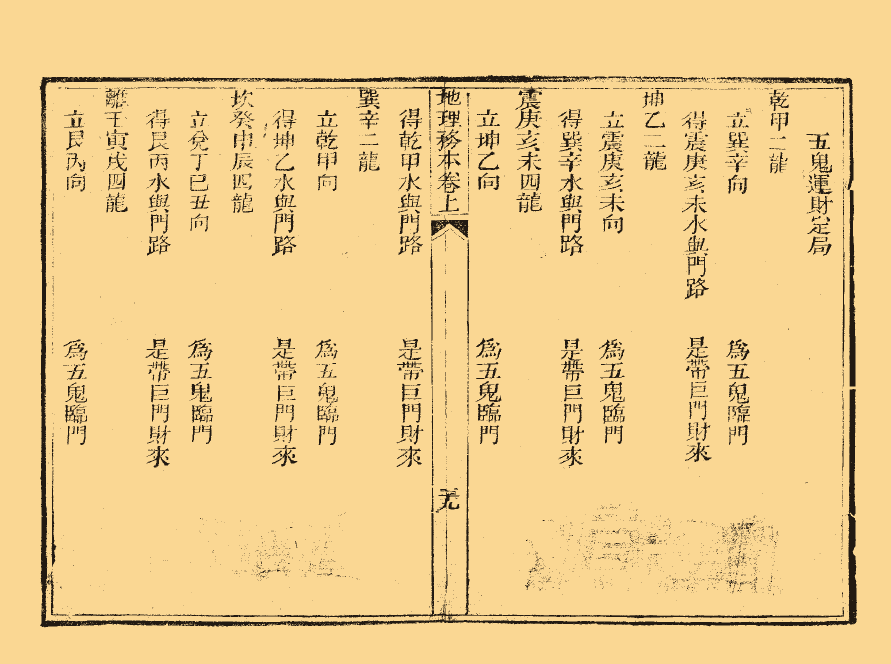 五鬼運財定局
乾甲二龍
立巽辛向　為五鬼臨門
得震庚亥未水與門路　是帶巨門財來
坤乙二龍
立震庚亥未向　為五鬼臨門
得巽辛水與門路　是帶巨門財來
震庚亥未四龍
立坤乙向　為五鬼臨門
地理務本卷上
得乾甲水與門路　是帶巨門財來
巽辛二龍
立乾甲向　為五鬼臨門
得坤乙水與門路　是帶巨門財來
坎癸申辰四龍
立兌丁巳丑向　為五鬼臨門
得艮丙水與門路　是帶巨門財來
離壬寅戌四龍
立艮丙向　為五鬼臨門